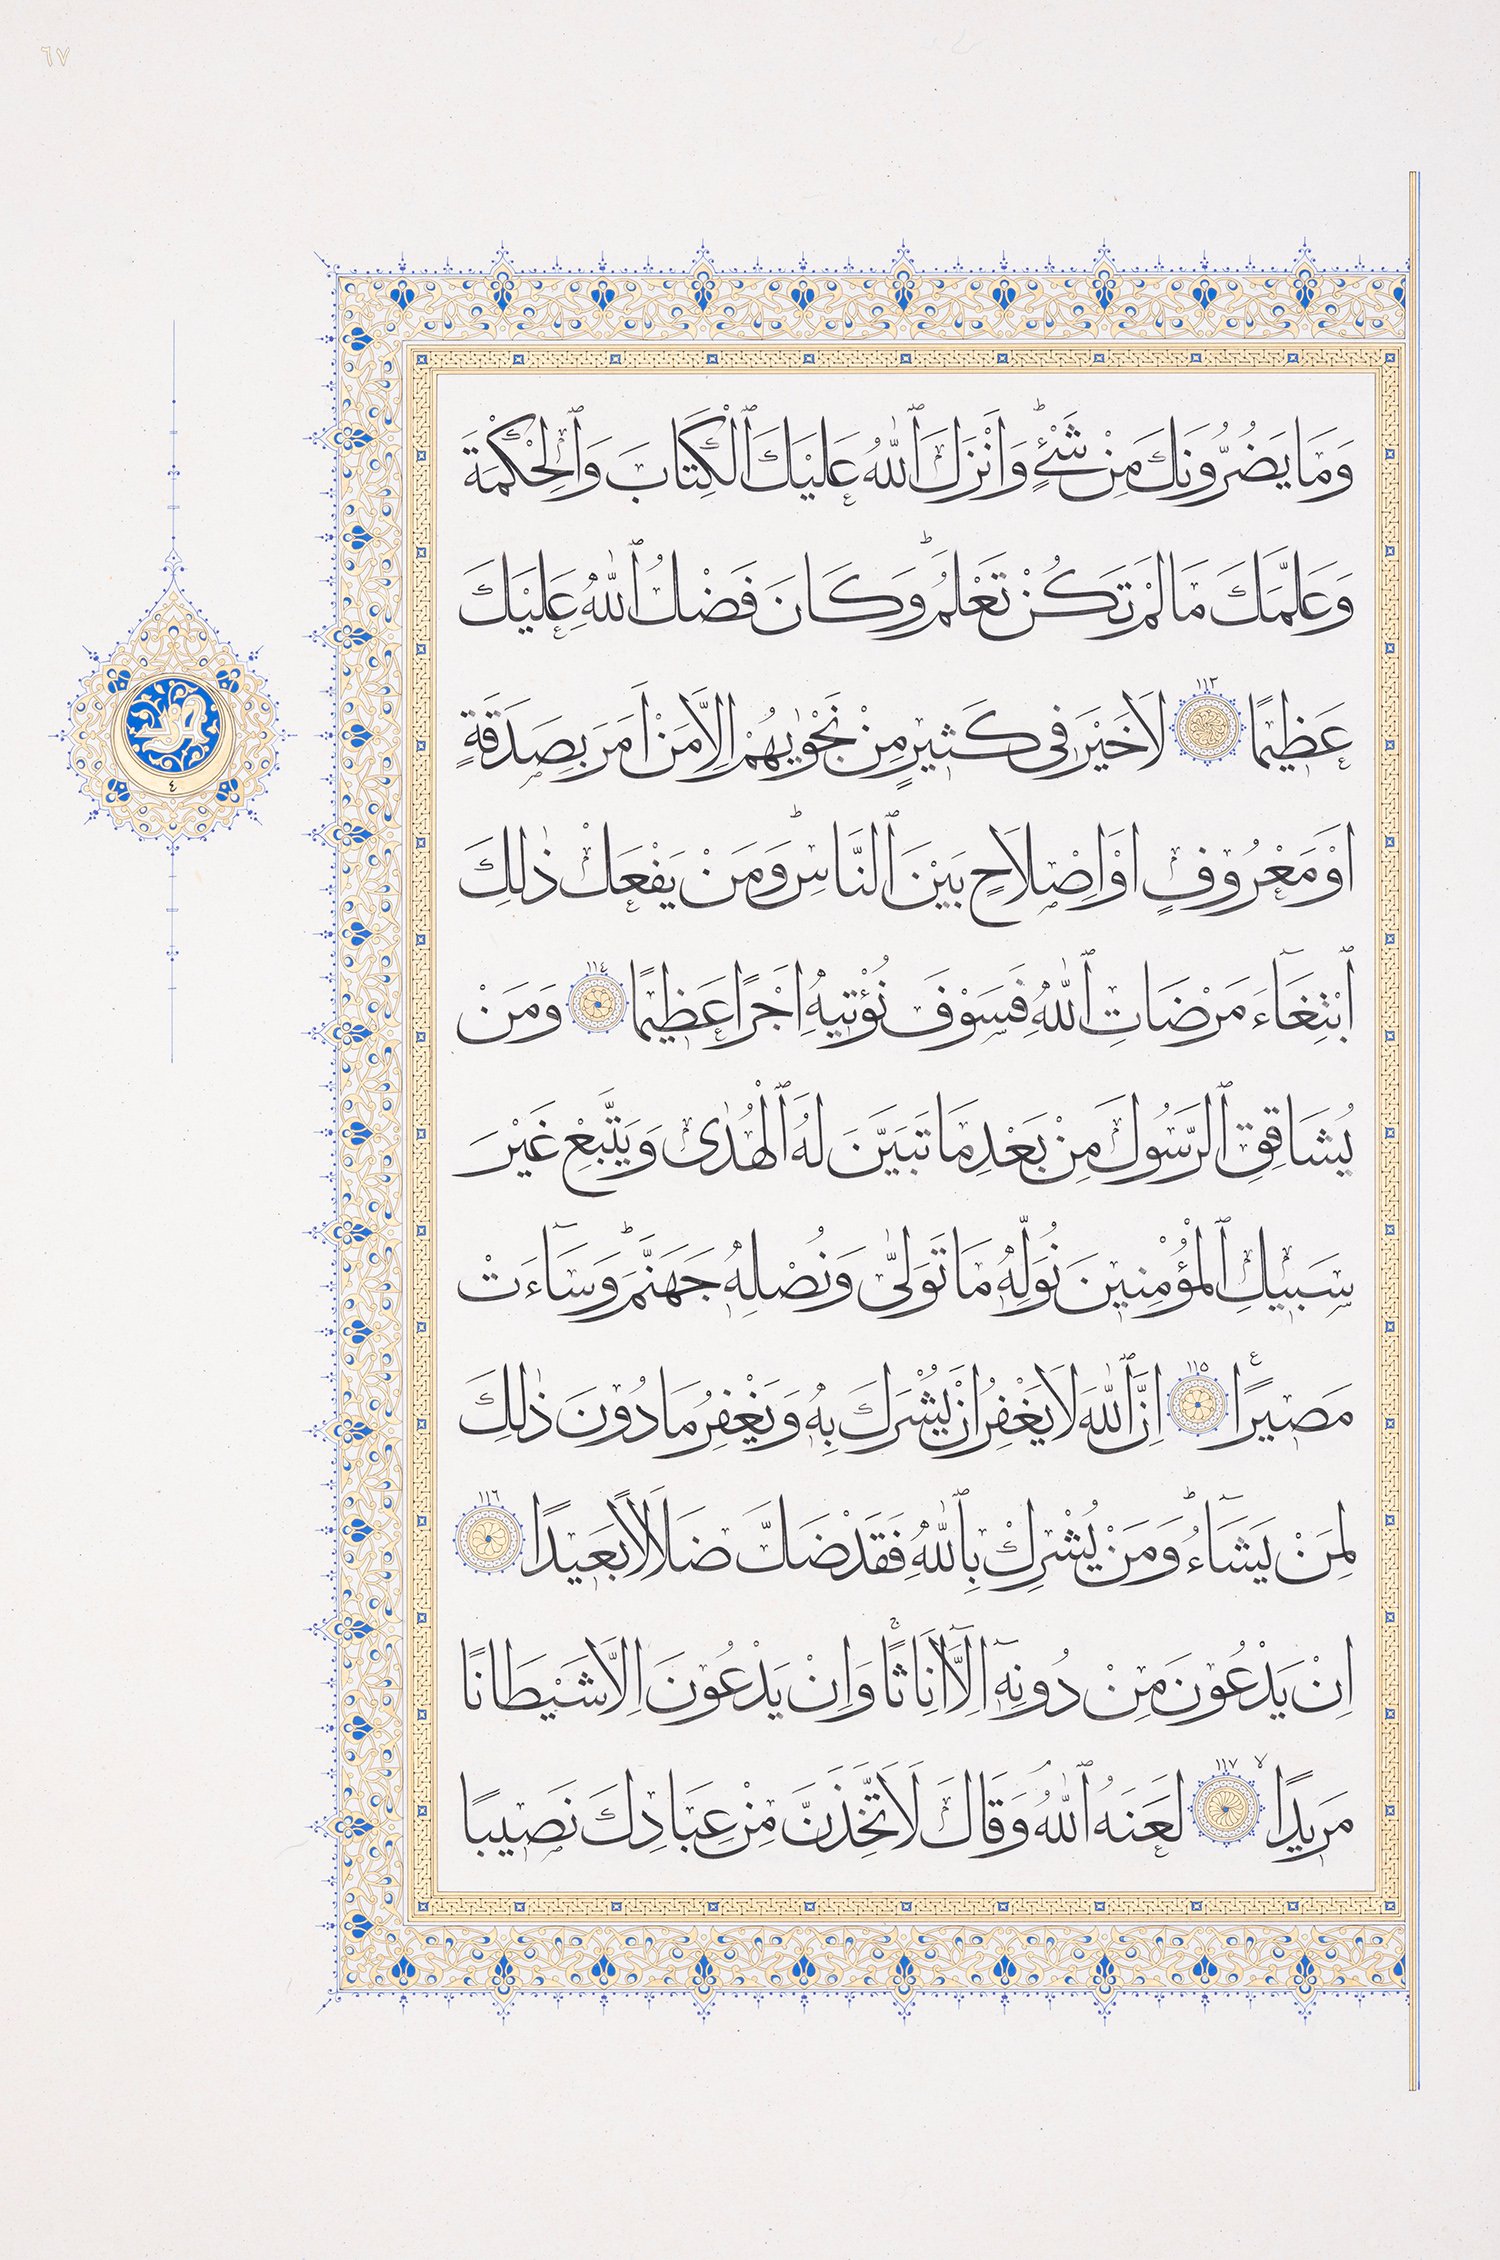 ٦٧
وَمَا يَضُرُّونَكَ مِنْ شَيْءٍۜ وَاَنْزَلَ ٱللّٰهُ عَلَيْكَ ٱلْكِتَابَ وَٱلْحِكْمَةَ
وَعَلَّمَكَ مَا لَمْ تَكُنْ تَعْلَمُۜ وَكَانَ فَضْلُ ٱللّٰهِ عَلَيْكَ
عَظِيمًا ١١٣ لَا خَيْرَ فِى كَثِيرٍ مِنْ نَجْوٰيهُمْ اِلَّا مَنْ اَمَرَ بِصَدَقَةٍ
اَوْ مَعْرُوفٍ اَوْ اِصْلَاحٍ بَيْنَ ٱلنَّاسِۜ وَمَنْ يَفْعَلْ ذٰلِكَ
ٱبْتِغَٓاءَ مَرْضَاتِ ٱللّٰهِ فَسَوْفَ نُؤْتِيهِ اَجْرًا عَظِيمًا ١١٤ وَمَنْ
يُشَاقِقِ ٱلرَّسُولَ مِنْ بَعْدِ مَا تَبَيَّنَ لَهُ ٱلْهُدٰى وَيَتَّبِعْ غَيْرَ
سَبِيلِ ٱلْمُؤْمِنِينَ نُوَلِّهِ مَا تَوَلّٰى وَنُصْلِهِ جَهَنَّمَۜ وَسَٓاءَتْ
مَصِيرًا ١١٥ اِنَّ ٱللّٰهَ لَا يَغْفِرُ اَنْ يُشْرَكَ بِهِ وَيَغْفِرُ مَا دُونَ ذٰلِكَ
لِمَنْ يَشَٓاءُۜ وَمَنْ يُشْرِكْ بِٱللّٰهِ فَقَدْ ضَلَّ ضَلَالًا بَعِيدًا ١١٦
اِنْ يَدْعُونَ مِنْ دُونِهِٓ اِلَّٓا اِنَاثًاۚ وَاِنْ يَدْعُونَ اِلَّا شَيْطَانًا
مَرِيدًاۙ ١١٧ لَعَنَهُ ٱللّٰهُۢ وَقَالَ لَاَتَّخِذَنَّ مِنْ عِبَادِكَ نَصِيبًا
٤